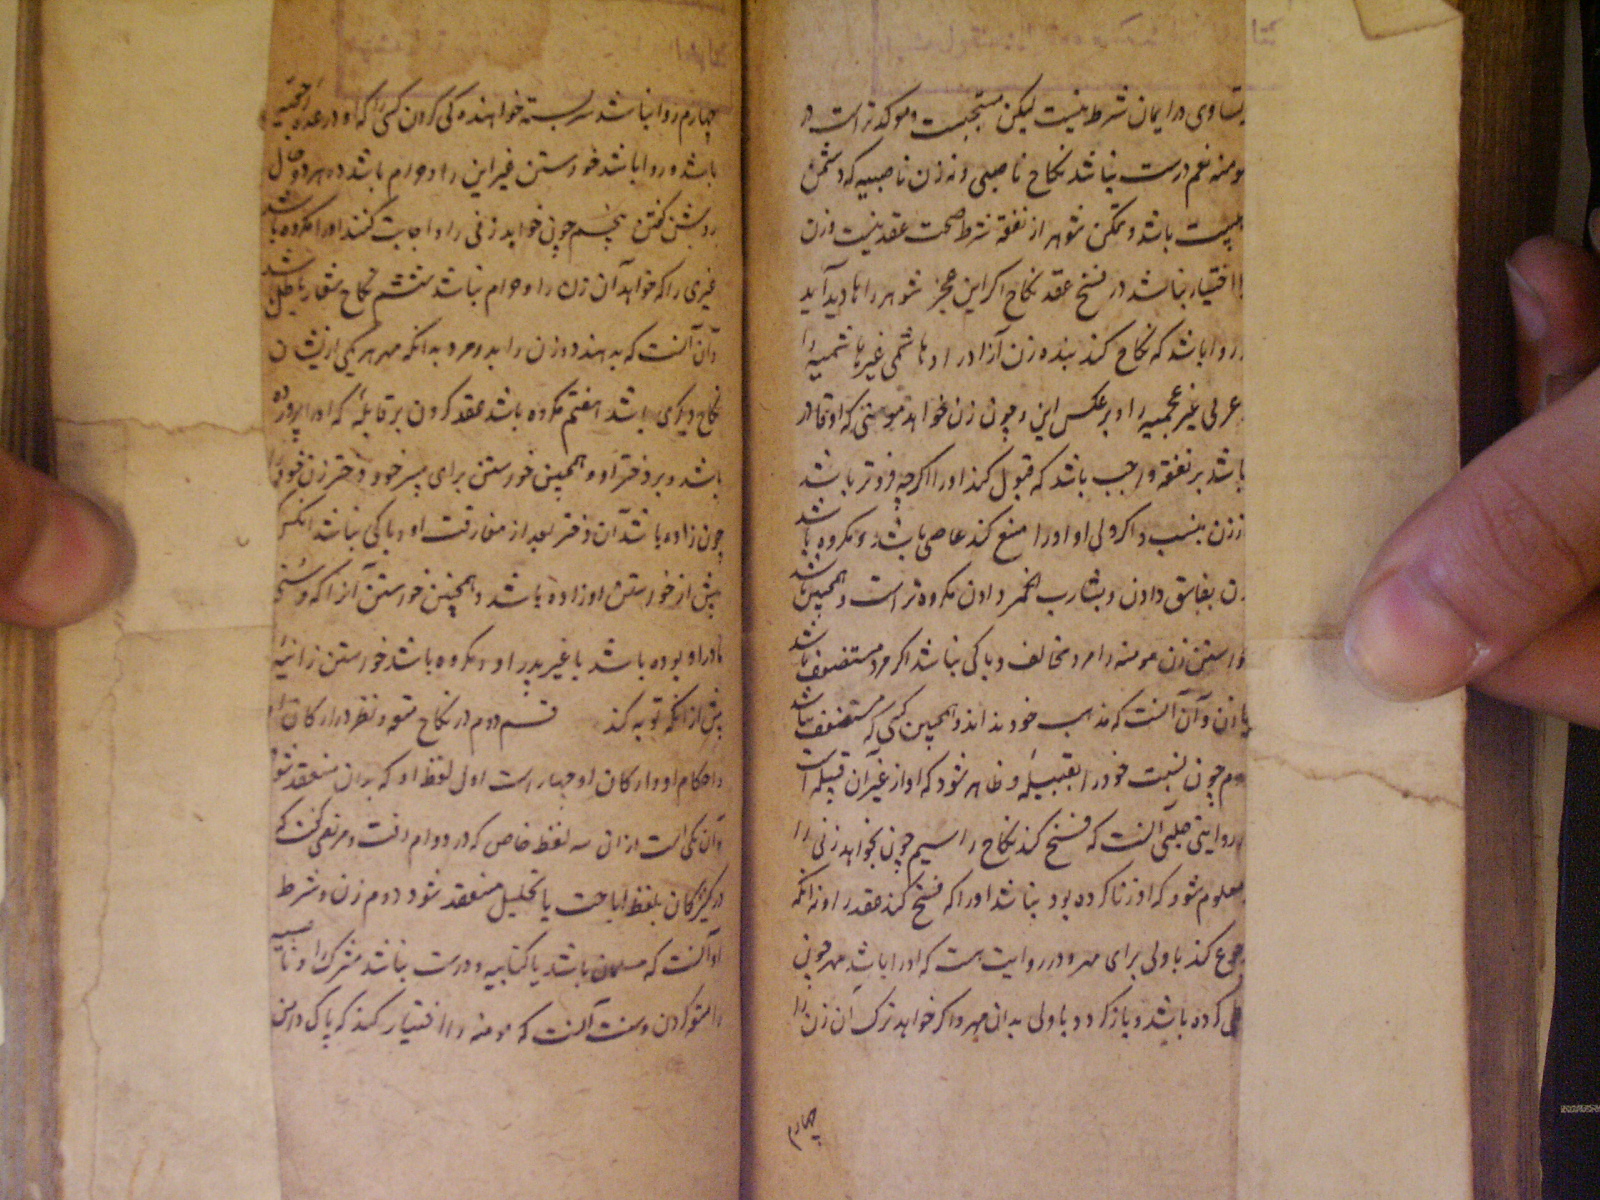 تساوی در ایمان شرط نیست لیکن مستحبست و موکدتر است در
مومنه نعم درست نباشد نکاح ناصبی و نه زن ناصبیه که دشمن
بیت باشد و تمکن شوهر از نفقه شرط صحت عقد نیست و زن
را اختیار نباشد در فسخ عقد نکاح اکر این عجز شوهر را پدید آید
و روا باشد که نکاح کند بنده زن آزاد را و هاشمی غیر هاشمیه را
و عربی غیر عجمیه را و بر عکس این و چون زن خواهد مومنی که او قادر
باشد بر نفقه واجب باشد که قبول کند او را اکرچه فروتر باشد
از زن بنسب و اکر ولی او او را منع کند عاصی باشد و مکروه باشد
زن بفاسق دادن و بشارب الخمر دادن مکروه تر است و همچنین باشد
خواستن زن مومنه را مرد مخالف و باکی نباشد اکر مرد مستضعف باشد
یا زن و آن آنست که مذهب خود نداند و همچنین کسی که مستضعف باشد
دوم چون نسبت خود را بقبیلهٔ و ظاهر شود که او از غیر آن قبیله است
در روایتی حلبی آنست که فسخ کند نکاح را سیم چون بخواهد زنی را
معلوم شود که او زنا کرده بود نباشد او را که فسخ کند عقد را و نه انکه
رجوع کند با ولی برای مهر و در روایت هست که او را باشد مهر چون
کرده باشد و باز کردد با ولی بدان مهر و اکر خواهد ترک آن زن را
چهارم
چهارم روا نباشد سربسته خواهنده کی کردن کسی را که او در عده رجعیه
باشد و روا باشد خواستن غیر این را و حرام باشد در هر دو حال
روشن کفتن پنجم چون خواهد زنی را و اجابت کنند او را مکروه باشد
غیری را که خواهد آن زن را و حرام نباشد ششم نکاح شغار باطل باشد
و آن آنست که بدهند دو زن را بدو مرد بدانکه مهر هر یکی ازیشان
نکاح دیکری باشد هفتم مکروه باشد عقد کردن بر قابلهٔ که او را پرورده
باشد و بر دختر او و همچنین خواستن برای پسر خود دختر زن خود را
چون زاده باشد آن دختر بعد از مفارقت او و باکی نباشد انکس
پیش از خواستن او زاده باشد و همچنین خواستن آنرا که وسنی
مادر او بوده باشد با غیر پدر او و مکروه باشد خواستن زانیه را
پیش از انکه توبه کند قسم دوم در نکاح متعه و نظر در ارکان او
و احکام او و ارکان او چهار است اول لفظ او که بدان منعقد شود
و آن یکی است از ان سه لفظ خاص که در دوام رفت و مرتضی کفت که
در کنیزکان بلفظ اباحت یا تحلیل منعقد شود دوم زن و شرط
او آنست که مسلمان باشد یا کتابیه و درست نباشد مشرک را و ناصبیه
را متعه کردن و سنت آنست که مومنه را اختیار کند که پاک دامن